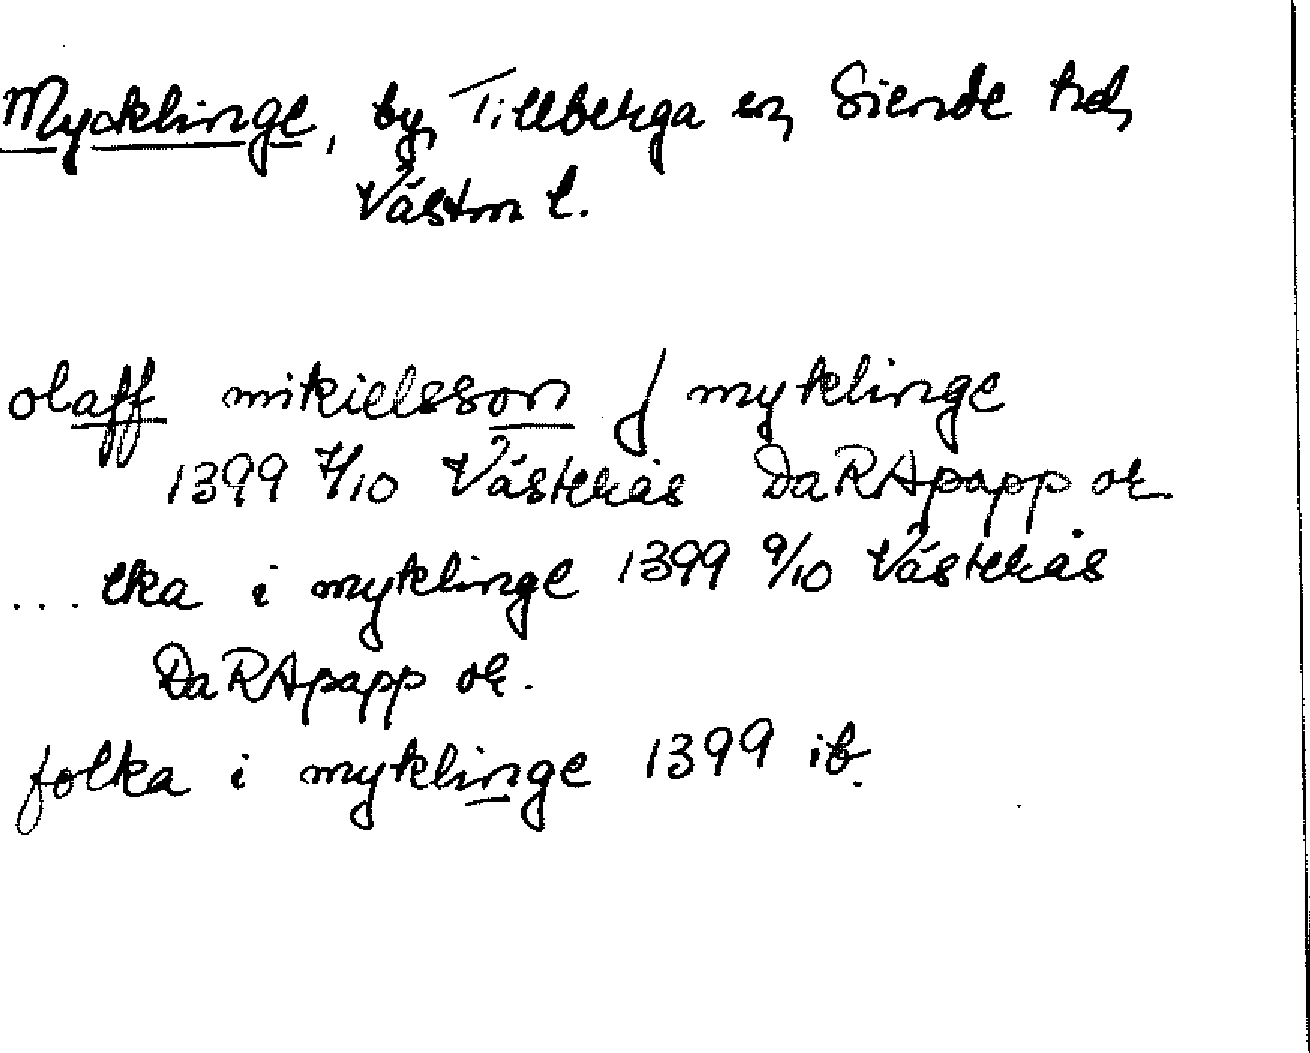 Mycklinge, by, Tillberga sn, Siende hd,
Västm l.
olaff mikielsson j myklinge
1399 7/10 Västerås DaRApapp or
... lka i myklinge 1399 9/10 Västerås
DaRApapp or.
folka i myklinge 1399 ib.